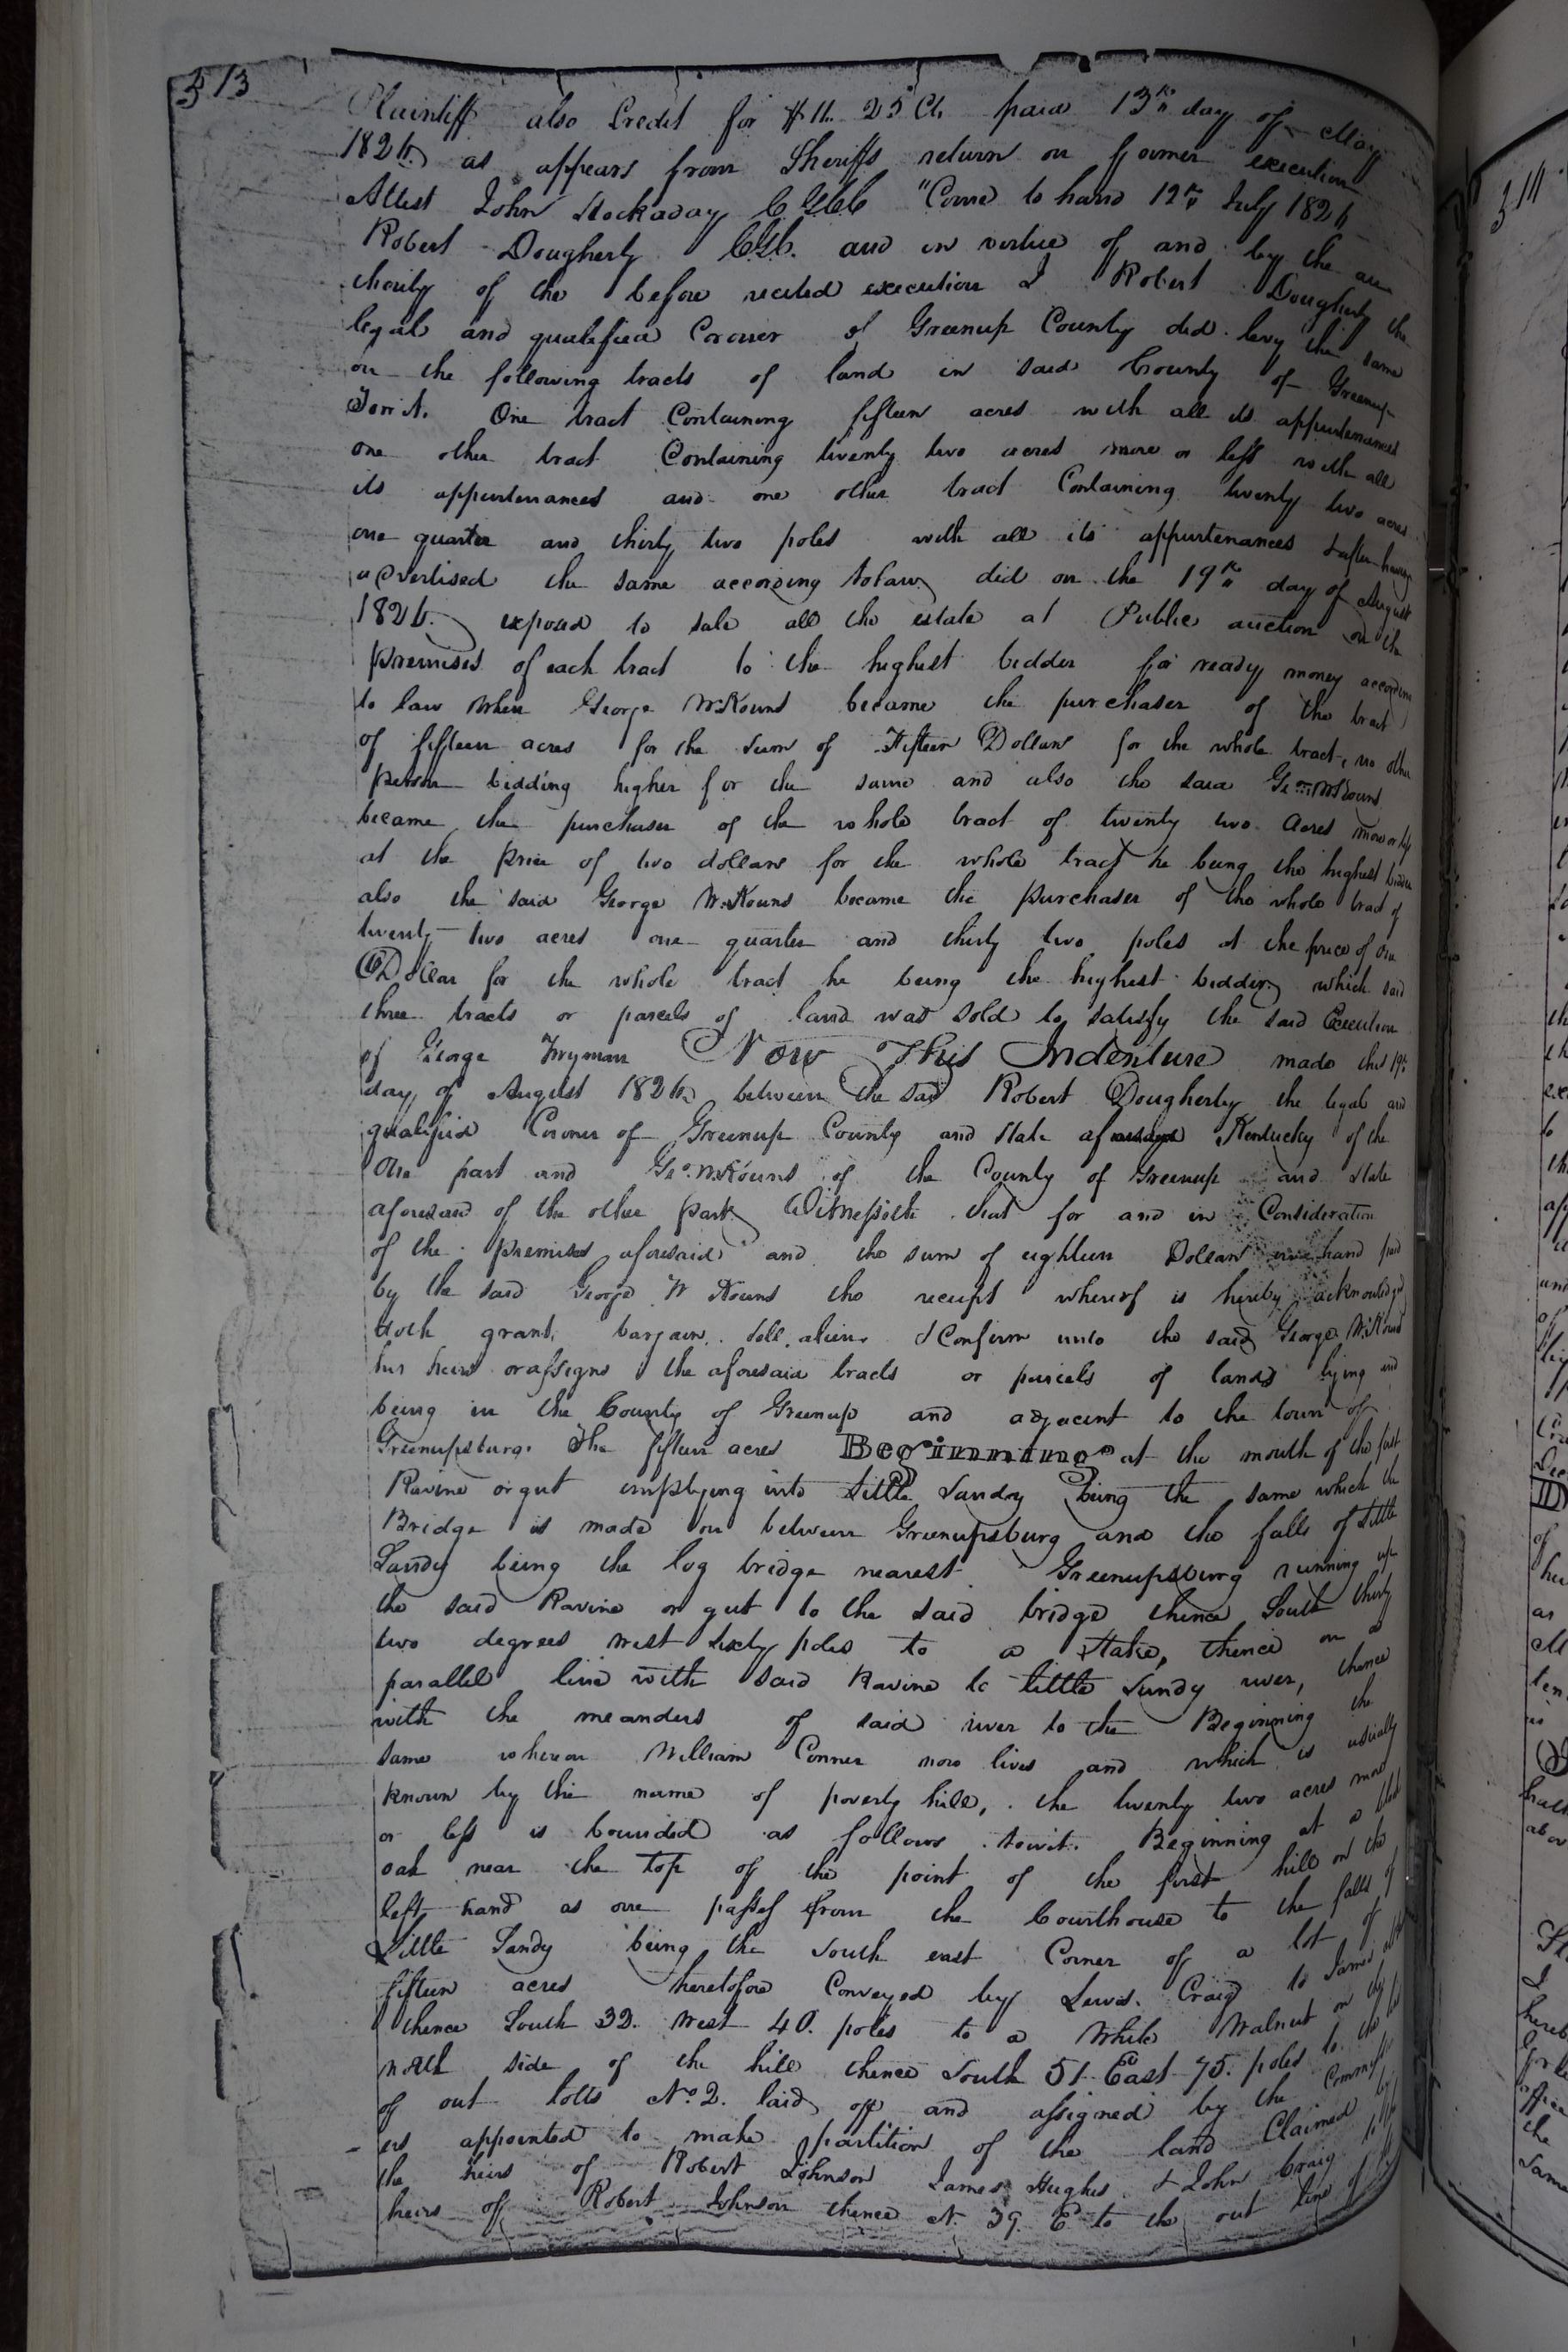 313
Plaintiff also Credit for $11. 25 Cts paid 13th day of May
1824 as appears from Sheriffs return on former execution
Attest John Hockaday "Come to hand 12th July 1824
Robert Dougherty C.G.C. and in virtue of and by the au
thority of the before recited execution I Robert Dougherty the
legal and qualified Coroner of Greenup County did levy the same
on the following tracts of land in said County of Greenup
Towit. One tract Containing fifteen acres with all its appurtenances
one other tract Containing twenty two acres more or less with all
its appurtenances and one other tract Containing twenty two acres
one quarter and thirty two poles with all its appurtenances & after having
advertised the same according to law did on the 19th day of August
1824 exposed to sale all the estate at Public auction on the
premises of each tract to the highest bidder for ready money according
to law when George W. Kouns became the purchaser of the tract
of fifteen acres for the sum of Fifteen Dollars for the whole tract, no other
person bidding higher for the same and also the said Geo. W Kouns
became the purchaser of the whole tract of twenty two Acres more or less
at the price of two dollars for the whole tract he being the highest bidder
also the said George W. Kouns became the purchaser of the whole tract of
twenty two acres one quarter and thirty two poles at the price of One
Dollar for the whole tract he being the highest bidder, which said
three tracts or parcels of land was sold to satisfy the said Execution
of George Fryman Now This Indenture made this 19th
day of August 1824 between the said Robert Dougherty the legal and
qualified Coroner of Greenup County and State aforesaid Kentucky of the
One part and Geo. W. Kouns of the County of Greenup and State
aforesaid of the other part Witnesseth that for and in Consideration
of the premises aforesaid and the sum of eighteen Dollars in hand paid
by the said George W Kouns the receipt whereof is hereby acknowledged
doth grant, bargain, sell, alien & Confirm unto the said George W. Kouns
his heirs or assigns the aforesaid tracts or parcels of lands lying and
being in the County of Greenup and adjacent to the town of
Greenupsburg. The fifteen acres Beginning at the mouth of the first
Ravine or gut emptying into Little Sandy being the same which the
Bridge is made on between Greenupsburg and the falls of Little
Sandy being the log bridge nearest Greenupsburg running up
the said Ravine or gut to the said bridge thence South thirty
two degrees west sixty poles to a stake, thence on a
parallel line with said Ravine to little Sandy river, thence
with the meanders of said river to the Beginning the
same whereon William Conner now lives and which is usually
known by the name of poverty hill, the twenty two acres more
or less is bounded as follows towit. Beginning at a
oak near the top of the point of the first hill on the
left hand as one passes from the Courthouse to the falls of
Little Sandy being the south east Corner of a lot of
fifteen acres heretofore Conveyed by Lewis Craig to James
thence South 32. West 40. poles to a White Walnut on the
north side of the hill thence South 51 East 75. poles to the
of out lotts No. 2. laid off and assigned by the Commission
ers appointed to make partition of the land Claimed by
the heirs of Robert Johnson James Hughes & John Craig to the
heirs of Robert Johnson thence N. 39. E to the out line of
314